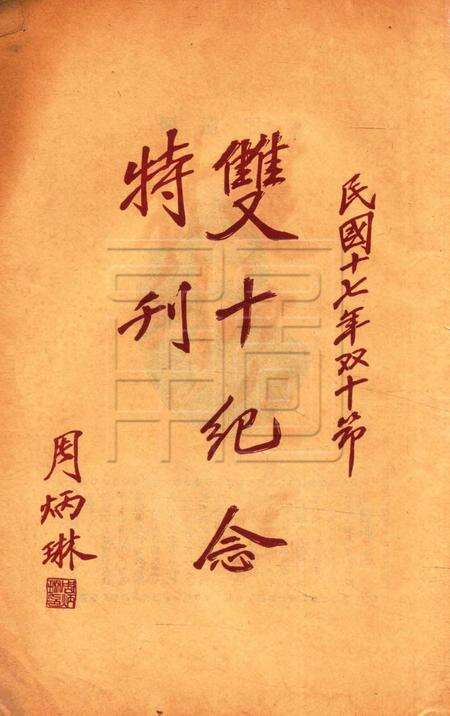 民國十七年双十節
雙十紀念
特刊
周炳琳